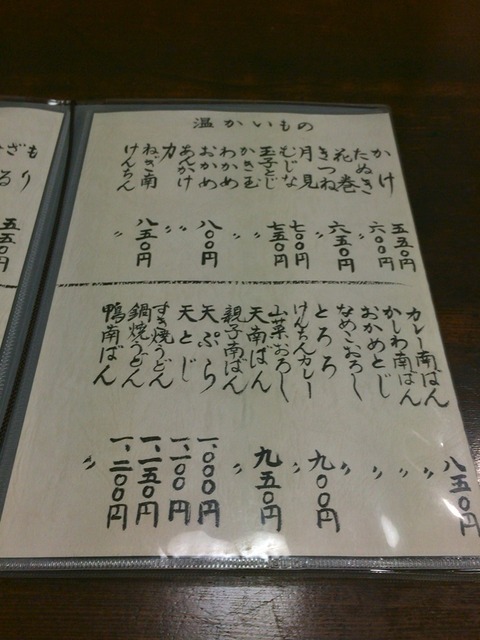 温かいもの
かけ
たぬき
花巻
きつね
月見
むじな
玉子とじ
かき玉
わかめ
おかめ
あんかけ
力
ねぎ南
けんちん
五五〇円
六〇〇円
〃
六五〇円
〃
七〇〇円
七五〇円
〃
〃
八〇〇円
〃
八五〇円
〃
カレー南ばん
かしわ南ばん
おかめとじ
なめこおろし
とろろ
けんちんカレー
山菜おろし
天南ばん
親子南ばん
天ぷら
天とじ
すき焼うどん
鍋焼うどん
鴨南ばん
八五〇円
〃
〃
〃
〃
九〇〇円
〃
九五〇円
〃
一、〇〇〇円
一、一〇〇円
一、一五〇円
一、二〇〇円
〃
もり
ざる
五五〇円